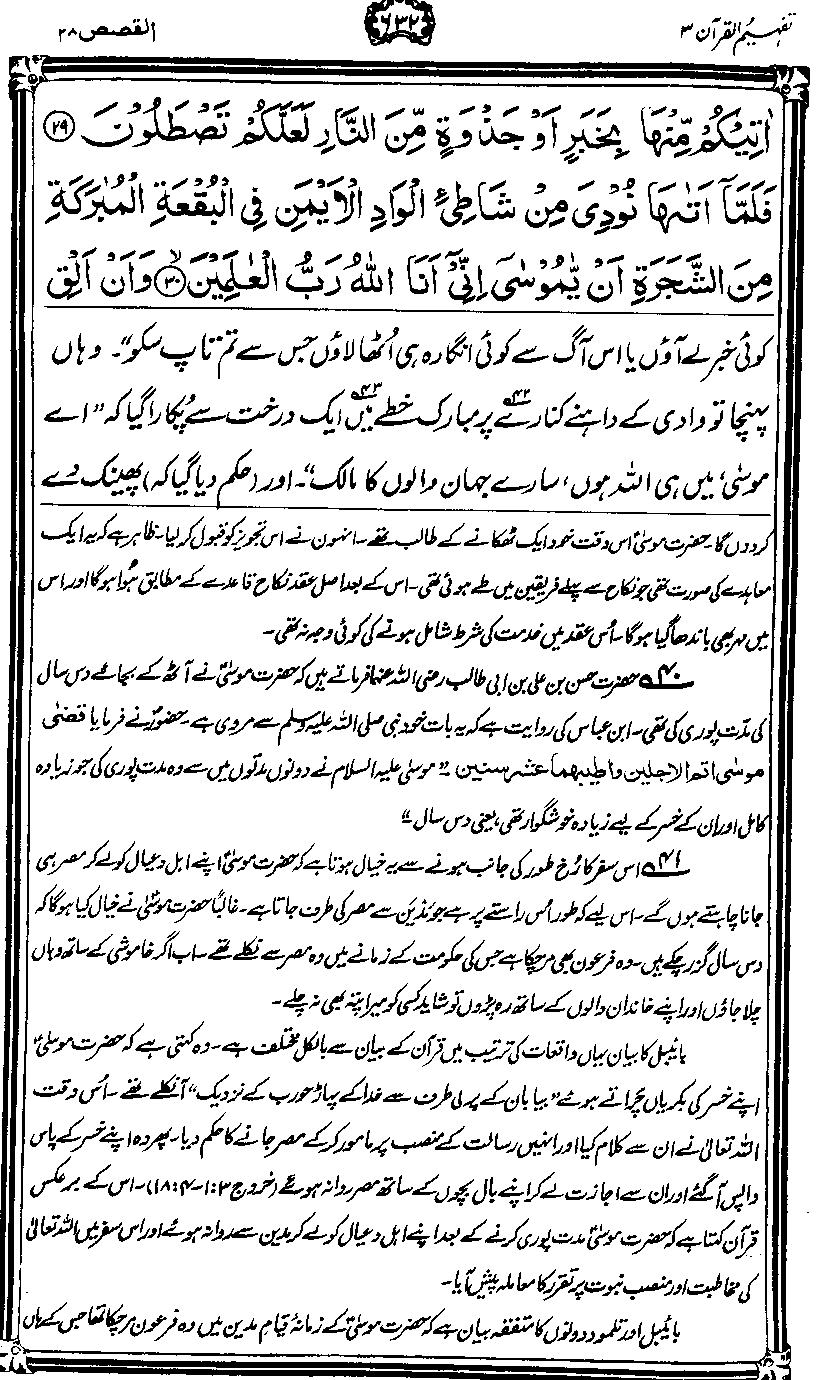 تفہیم القرآن ۳
۶۳۲
القصص ۲۸
اٰتِیْكُمْ مِّنْهَا بِخَبَرٍ اَوْ جَذْوَةٍ مِّنَ النَّارِ لَعَلَّكُمْ تَصْطَلُوْنَ ۝۲۹
فَلَمَّاۤ اَتٰىهَا نُوْدِیَ مِنْ شَاطِئِ الْوَادِ الْاَیْمَنِ فِی الْبُقْعَةِ الْمُبٰرَكَةِ
مِنَ الشَّجَرَةِ اَنْ یّٰمُوْسٰۤى اِنِّیْۤ اَنَا اللّٰهُ رَبُّ الْعٰلَمِیْنَ ۝۳۰ وَ اَنْ اَلْقِ
کوئی خبر لے آؤں یا اس آگ سے کوئی انگارہ ہی اُٹھا لاؤں جس سے تم تاپ سکو“۔ وہاں
پہنچا تو وادی کے داہنے کنارے۴۲ پر مبارک خطے میں۴۳ ایک درخت سے پُکارا گیا کہ ”اے
موسیٰ، میں ہی اللہ ہوں، سارے جہان والوں کا مالک“۔ اور (حکم دیا گیا کہ) پھینک دے
کردوں گا۔ حضرت موسیٰؑ اس وقت خود ایک ٹھکانے کے طالب تھے۔ انہوں نے اس تجویز کو قبول کر لیا۔ ظاہر ہے کہ یہ ایک
معاہدے کی صورت تھی جو نکاح سے پہلے فریقین میں طے ہوئی تھی۔ اس کے بعد اصل عقدِ نکاح قاعدے کے مطابق ہُوا ہوگا اور اس
میں مہر بھی باندھا گیا ہوگا۔ اُس عقد میں خدمت کی شرط شامل ہونے کی کوئی وجہ نہ تھی۔
۴۰ حضرت حسن بن علی بن ابی طالب رضی اللہ عنہما فرماتے ہیں کہ حضرت موسیٰؑ نے آٹھ کے بجائے دس سال
کی مدّت پوری کی تھی۔ ابن عباس کی روایت ہے کہ یہ بات خود نبی صلی اللہ علیہ وسلم سے مروی ہے۔ حضورؐ نے فرمایا قضٰی
موسٰی اتم الاجلین واطیبھما عشر سنین ”موسیٰ علیہ السلام نے دونوں مدتوں میں سے وہ مدت پوری کی جو زیادہ
کامل اور ان کے خسر کے لیے زیادہ خوشگوار تھی، یعنی دس سال“
۴۱ اس سفر کا رُخ طور کی جانب ہونے سے یہ خیال ہوتا ہے کہ حضرت موسیٰؑ اپنے اہل و عیال کو لے کر مصر ہی
جانا چاہتے ہوں گے۔ اس لیے کہ طور اُس راستے پر ہے جو مَدْیَن سے مصر کی طرف جاتا ہے۔ غالباً حضرت موسیٰؑ نے خیال کیا ہوگا کہ
دس سال گزر چکے ہیں۔ وہ فرعون بھی مر چکا ہے جس کی حکومت کے زمانے میں وہ مصر سے نکلے تھے۔ اب اگر خاموشی کے ساتھ وہاں
چلا جاؤں اور اپنے خاندان والوں کے ساتھ رہ پڑوں تو شاید کسی کو میرا پتہ بھی نہ چلے۔
بائیبل کا بیان یہاں واقعات کی ترتیب میں قرآن کے بیان سے بالکل مختلف ہے۔ وہ کہتی ہے کہ حضرت موسیٰؑ
اپنے خسر کی بکریاں چراتے ہوئے ”بیابان کے پرلی طرف سے خدا کے پہاڑ حورب کے نزدیک“ آ نکلے تھے۔ اُس وقت
اللہ تعالیٰ نے ان سے کلام کیا اور انہیں رسالت کے منصب پر مامور کر کے مصر جانے کا حکم دیا۔ پھر وہ اپنے خسر کے پاس
واپس آ گئے اور ان سے اجازت لے کر اپنے بال بچوں کے ساتھ مصر روانہ ہوئے (خروج ۱:۳۔۱۸:۴)۔ اس کے برعکس
قرآن کہتا ہے کہ حضرت موسیٰؑ مدت پوری کرنے کے بعد اپنے اہل و عیال کو لے کر مدین سے روانہ ہوئے اور اس سفر میں اللہ تعالیٰ
کی مخاطبت اور منصب نبوت پر تقرر کا معاملہ پیش آیا۔
بائیبل اور تلمود دونوں کا متفقہ بیان ہے کہ حضرت موسیٰؑ کے زمانۂ قیامِ مدین میں وہ فرعون مر چکا تھا جس کے ہاں